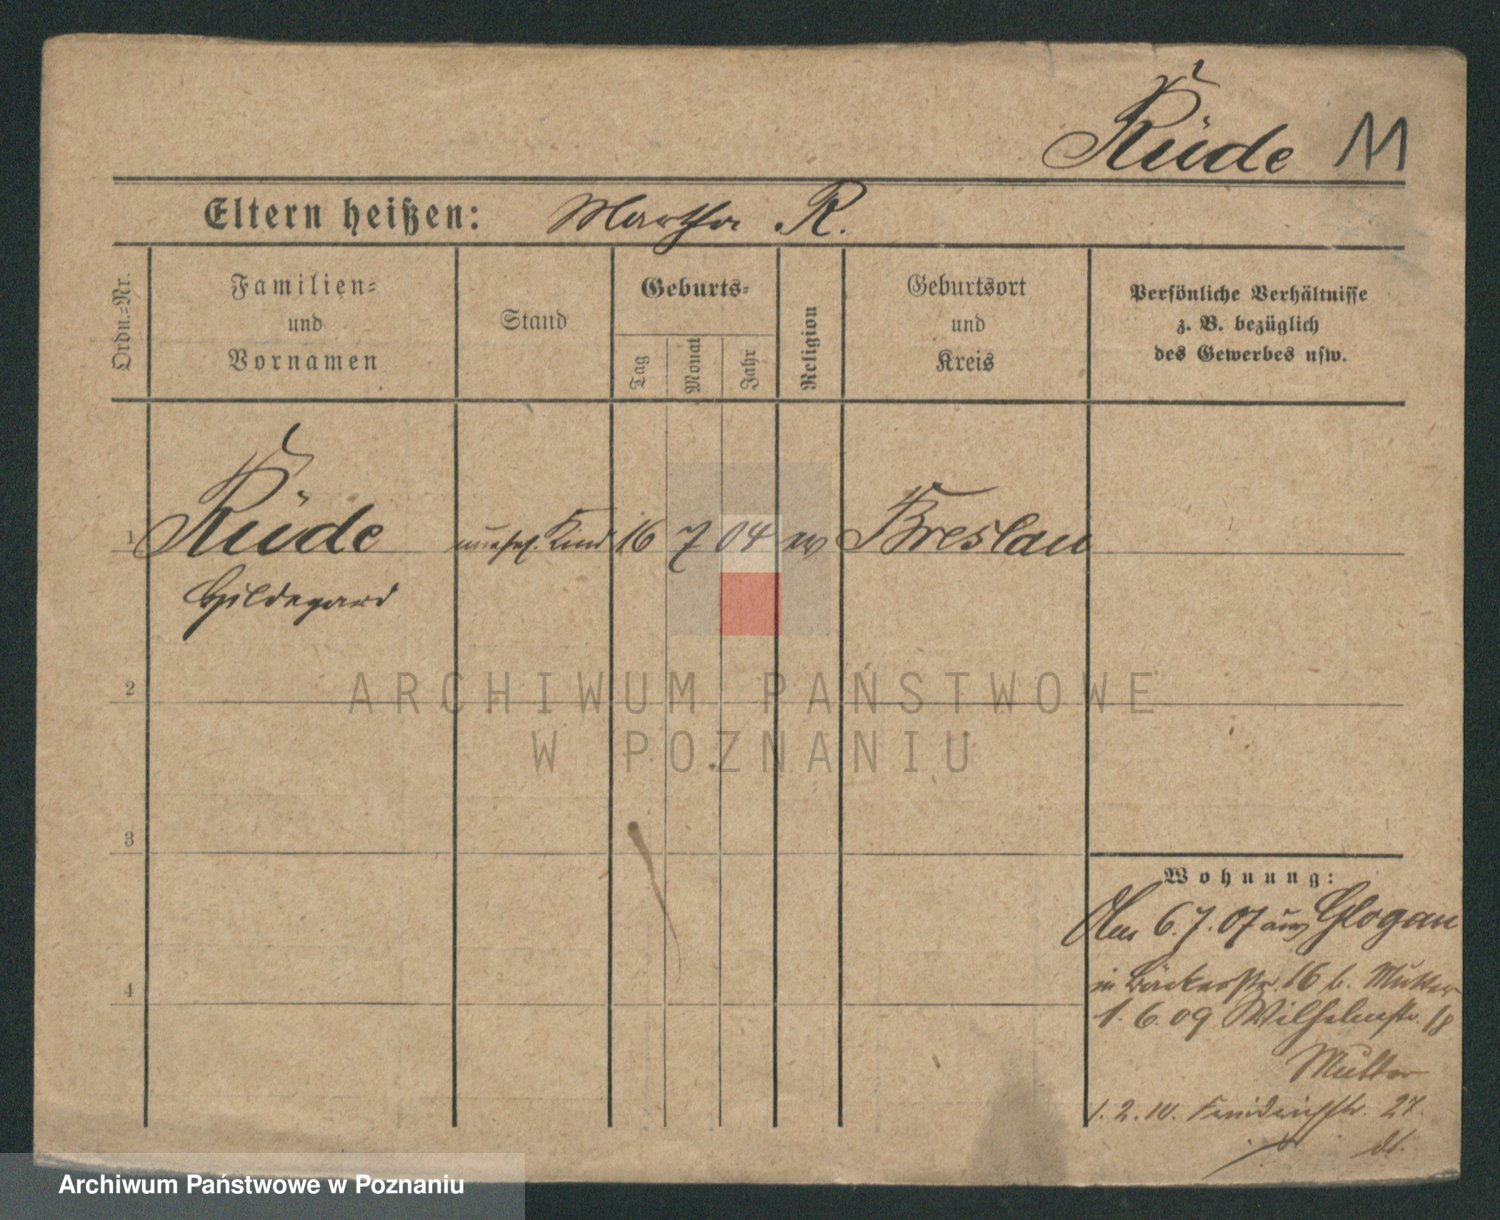 Rüde 11
Eltern heißen: Martha R.
Ordn.-Nr.
Familien-
und
Vornamen
Stand
Geburts-
Tag
Monat
Jahr
Religion
Geburtsort
und
Kreis
Persönliche Verhältnisse
z. B. bezüglich
des Gewerbes usw.
1 Rüde unehel. Kind 16 7 04 ev Breslau
Hildegard
2
3
4
Wohnung:
Am 6.7.07 aus Glogau
in Bäckerstr. 16 b. Mutter
1.6.09 Wilhelmstr. 18
Mutter
1.2.10. Friedrichstr. 27.
ARCHIWUM PAŃSTWOWE
W POZNANIU
Archiwum Państwowe w Poznaniu